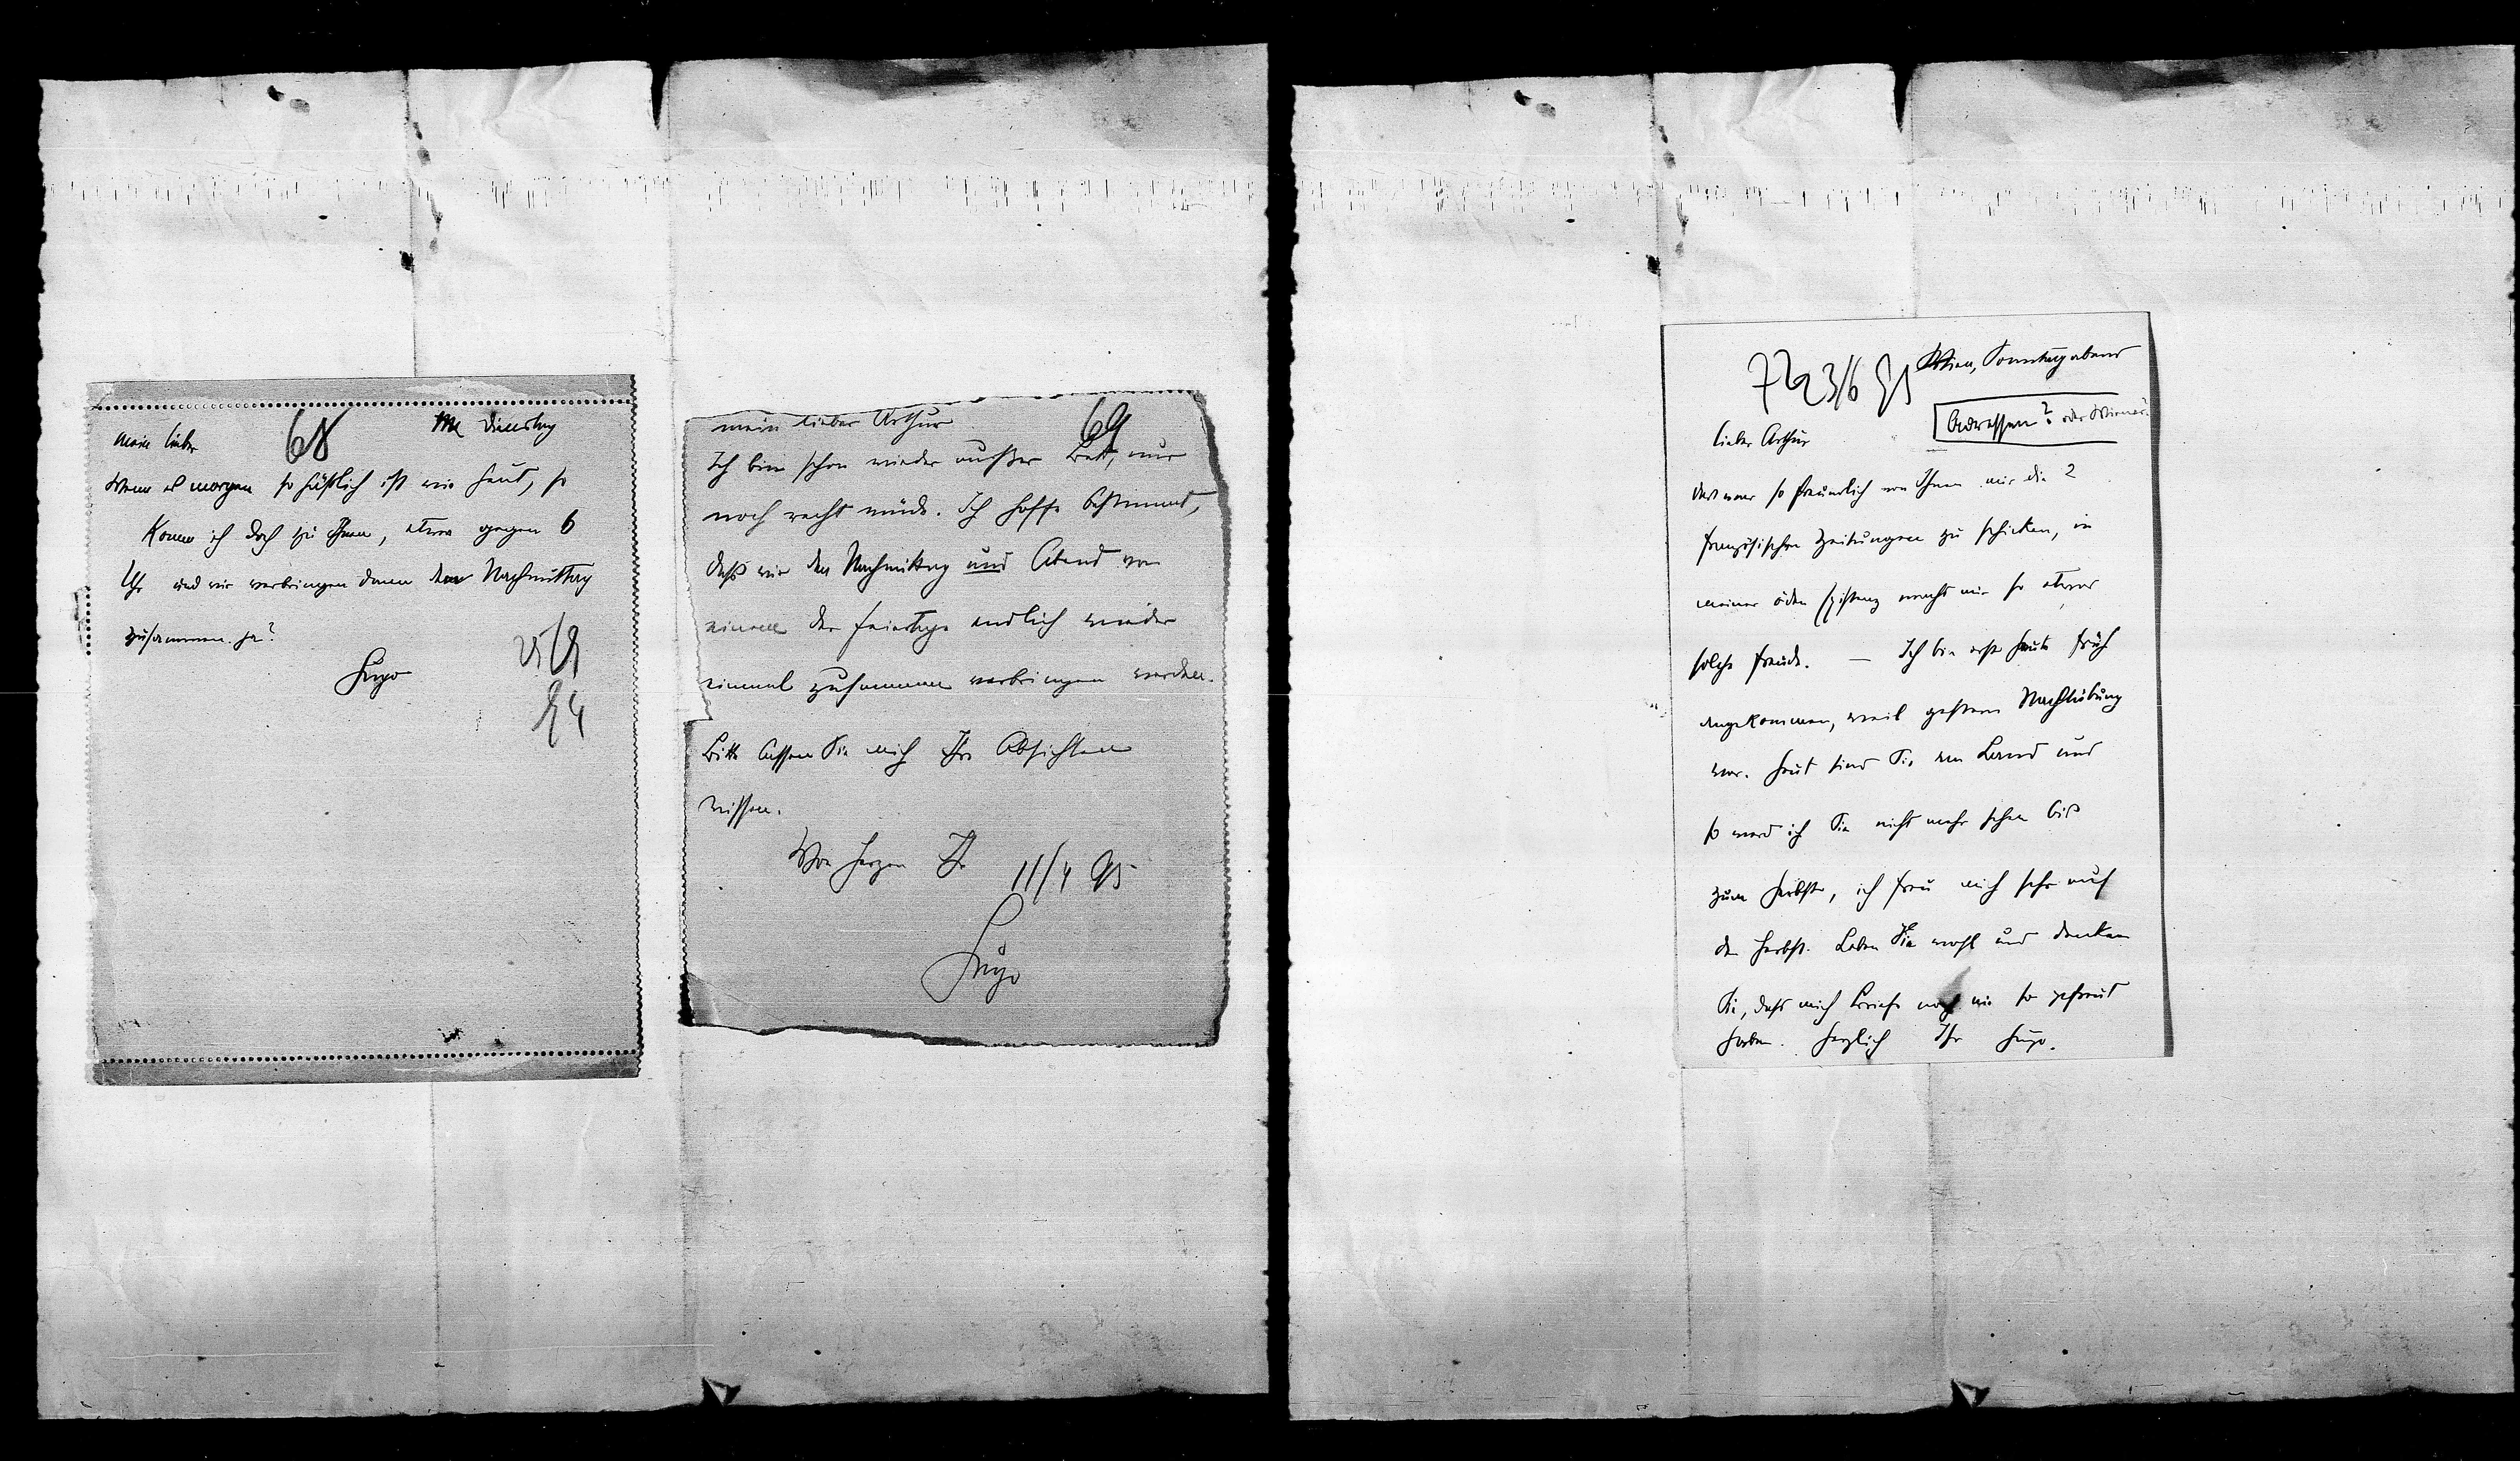 68
Dienstag
mein lieber
Wenn es morgen so häßlich ist wie heut, so
komm ich doch zu Ihnen, etwa gegen 6
Uhr und wir verbringen dann den Nachmittag
zusammen. ja?
Hugo
25/9
94
mein lieber Arthur
69
Ich bin schon wieder außer Bett, nur
noch recht müde. Ich hoffe bestimmt,
daß wir den Nachmittag und Abend von
einem der Feiertage endlich wieder
einmal zusammen verbringen werden.
Bitte lassen Sie mich Ihre Absichten
wissen.
Von Herzen Ihr
11/4 95
Hugo
72 23/6 95
Wien, Sonntag abend
Adressen? oder Wiener?
lieber Arthur
das war so freundlich von Ihnen mir die 2
französischen Zeitungen zu schicken, in
meiner öden Existenz macht mir so etwas
solche Freude. — Ich bin erst heute früh
angekommen, weil gestern Nachtübung
war. Heut sind Sie am Land und
so werd ich Sie nicht mehr sehen bis
zum Herbst, ich freu mich sehr auf
den Herbst. Leben Sie wohl und denken
Sie, dass mich Briefe noch nie so gefreut
haben. Herzlich Ihr Hugo.